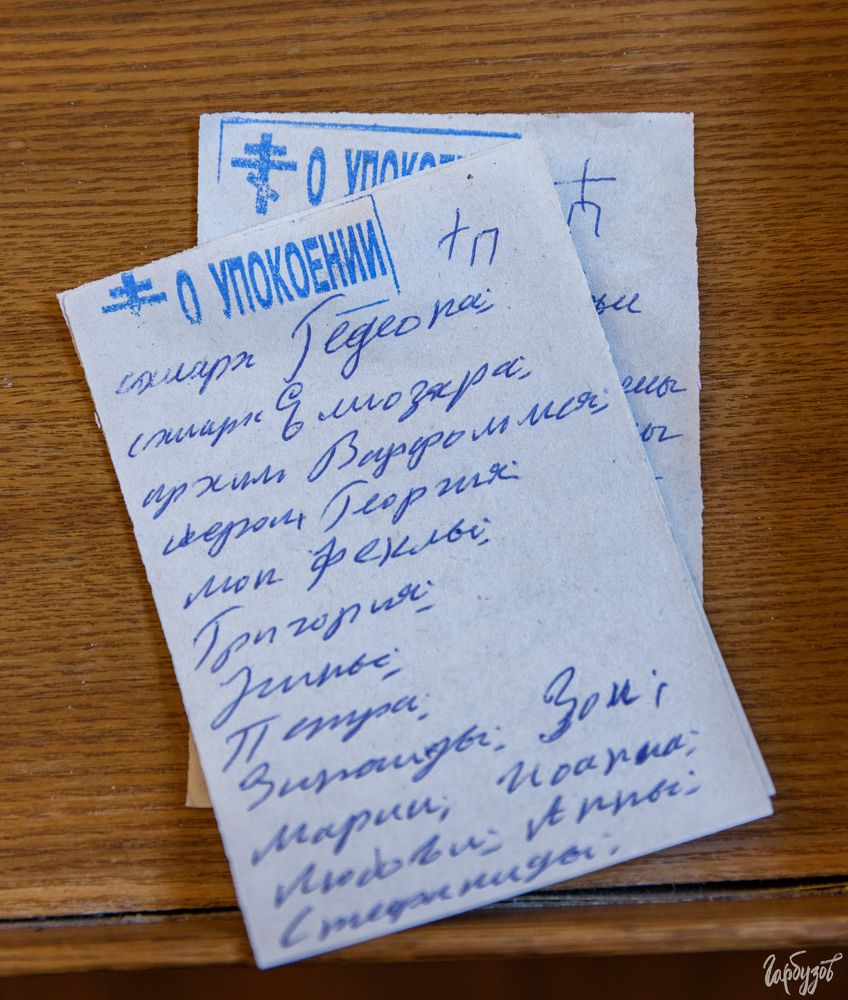 О УПОКОЕНИИ
О УПОКОЕНИИ
+П
схиарх Гедеона;
схиарх Елиозара;
архим Варфоломея;
иером Георгия;
мон Феклы;
Григория;
Нины;
Петра;
Зинаиды; Зои;
Марии; Иоанна;
Любови; Анны;
Стефаниды;
Гарбузов